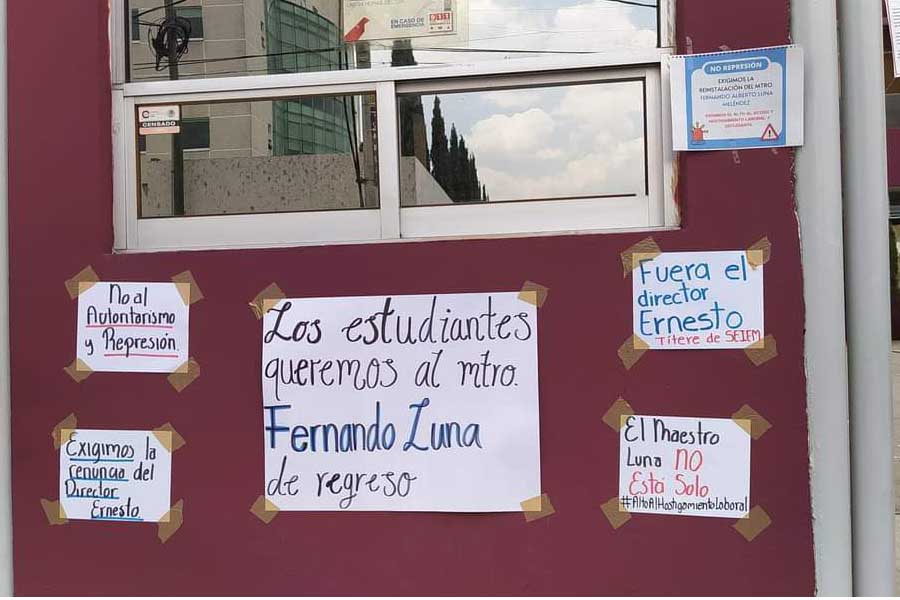 EN CASO DE
EMERGENCIA
911
CENSADO
NO REPRESIÓN
EXIGIMOS LA
REINSTALACIÓN DEL MTRO
FERNANDO ALBERTO LUNA
MELÉNDEZ
No al
Autoritarismo
y Represión.
Los estudiantes
queremos al mtro.
Fernando Luna
de regreso
Fuera el
director
Ernesto
Títere de SEIEM
Exigimos la
renuncia del
Director
Ernesto
El Maestro
Luna NO
Está Solo
#AltoAlHostigamientoLaboral